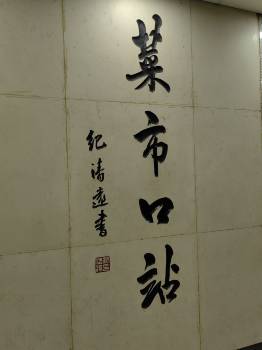 菜市口站
纪清远書